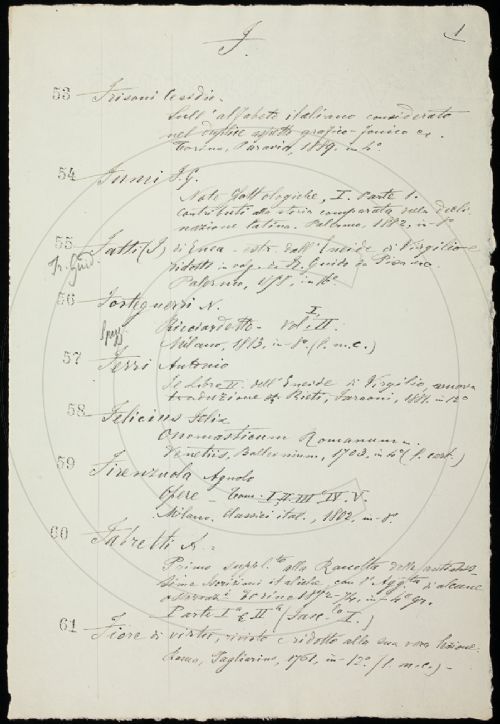 F.
1
53 Frisoni Cesidio.
Sull'alfabeto italiano considerato
nel duplice aspetto grafico-fonico
Torino, Paravia, 1889. in 4°.
54 Fumi F. G.
Note Glottologiche, I. Parte 1.
Contributi alla storia comparata della decli-
nazione latina. Palermo, 1882, in-8°
55 Fatti (I) di Enea estr. dall'Eneide di Virgilio e
Fr. Guid.
ridotti in volg. da Fr. Guido da Pisa
Palermo, in-16°
56 Forteguerri N.
Ricciardetto - Vol. I, II.
Milano, 1813. in-8° (l. m. c.)
57 Ferri Antonio
Il Libro II. dell'Eneide di Virgilio, nuova
traduzione Rieti, 1881. in 12°
58 Felicius Felix
Onomasticum Romanum.
Venetiis, 1703, in 4°
59 Firenzuola Agnolo
Opere - Tom. I, II. III. IV. V.
Milano. Classici ital., 1802, in-8°.
60 Fabretti A.
Primo suppl.to alla Raccolta delle antichis-
sime iscrizioni italiche, con l'Agg.ta d'alcune
osservaz.i Torino 1872-74. in-4° gr.
Parte I.a e II.a (Fasc.lo I.)
61 Fiore di virtù, rivisto e ridotto alla sua vera lezione.
Roma, Pagliarini, 1761, in-12° (l. m. c.) -